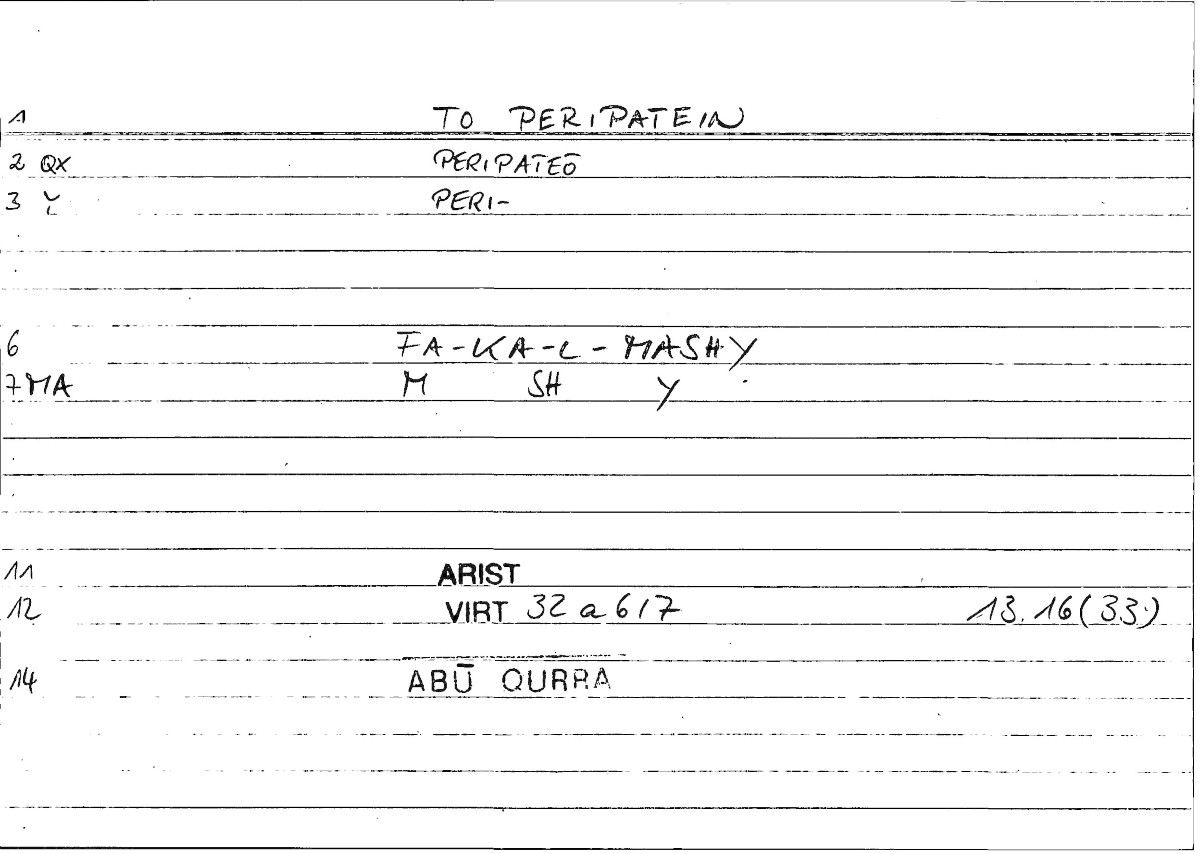 1 TO PERIPATEIN
2 QX PERIPATEŌ
3 Y PERI-
6 FA-KA-L-MASHY
7 MA M SH Y
11 ARIST
12 VIRT 32 a 6/7 13.16(33)
14 ABŪ QURRA